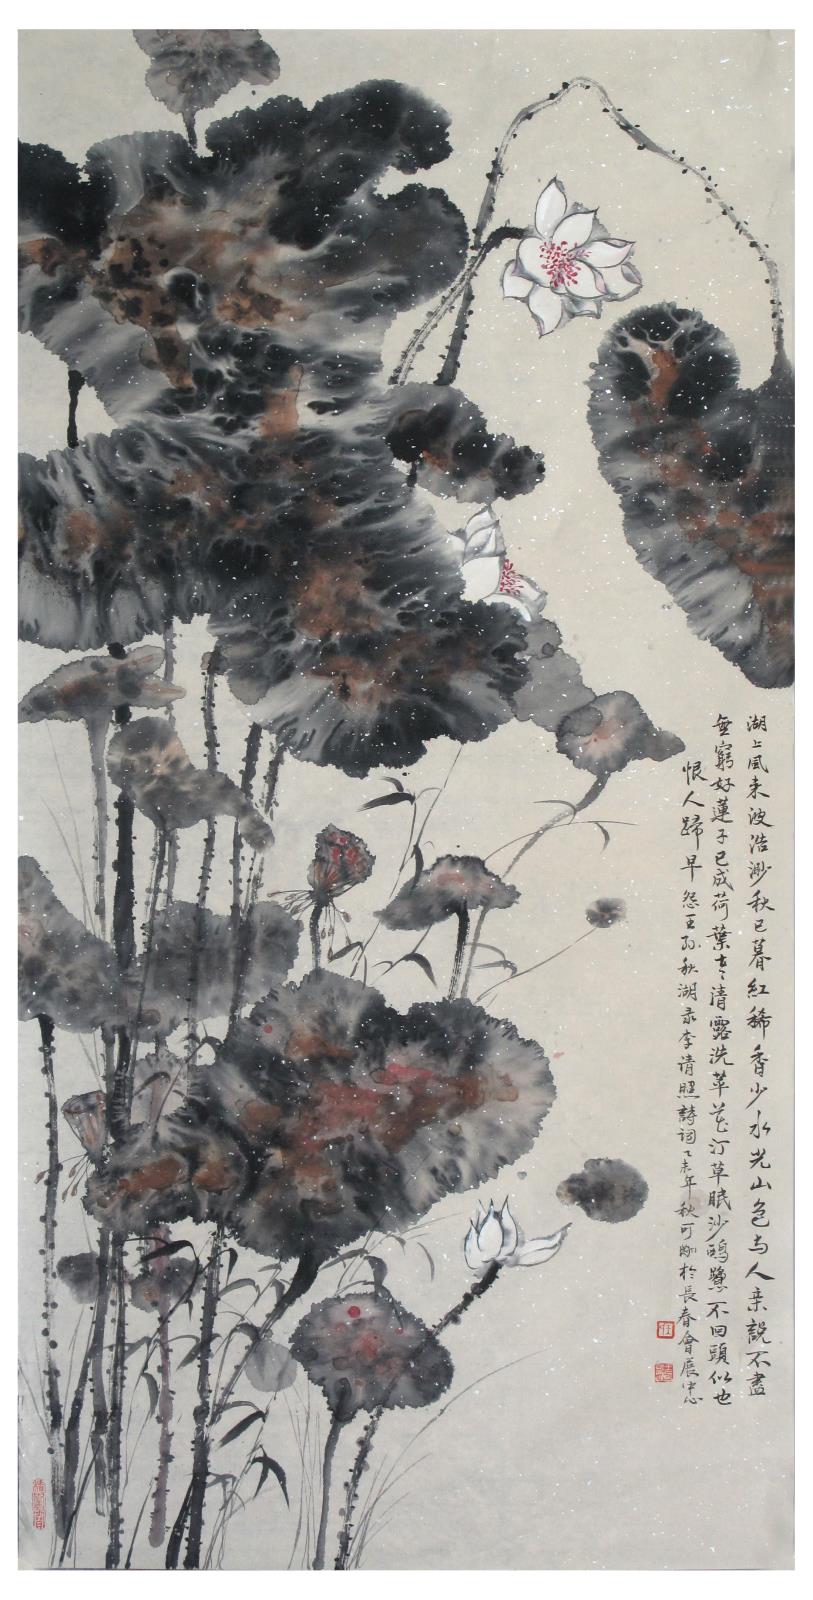 湖上風来波浩渺秋已暮紅稀香少水光山色与人亲說不盡
無窮好蓮子已成荷葉老清露洗苹花汀草眠沙鷗鷺不回頭似也
恨人歸早怨王孙秋湖录李清照詩词乙未年秋可於長春會展中心